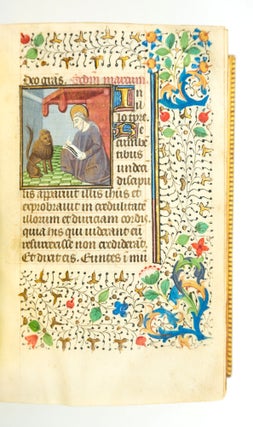 deo gras. Scdm marcum
In
illo tpre.
Re
cumbē
tibus
undeci
discipu
lis apparuit illis ihūs et
exprobravit in credulitatē
illorum et duriciam cordis
quia his qui viderant eū
resurrexisse non crediderāt.
Et dixit eis. Euntes i mū